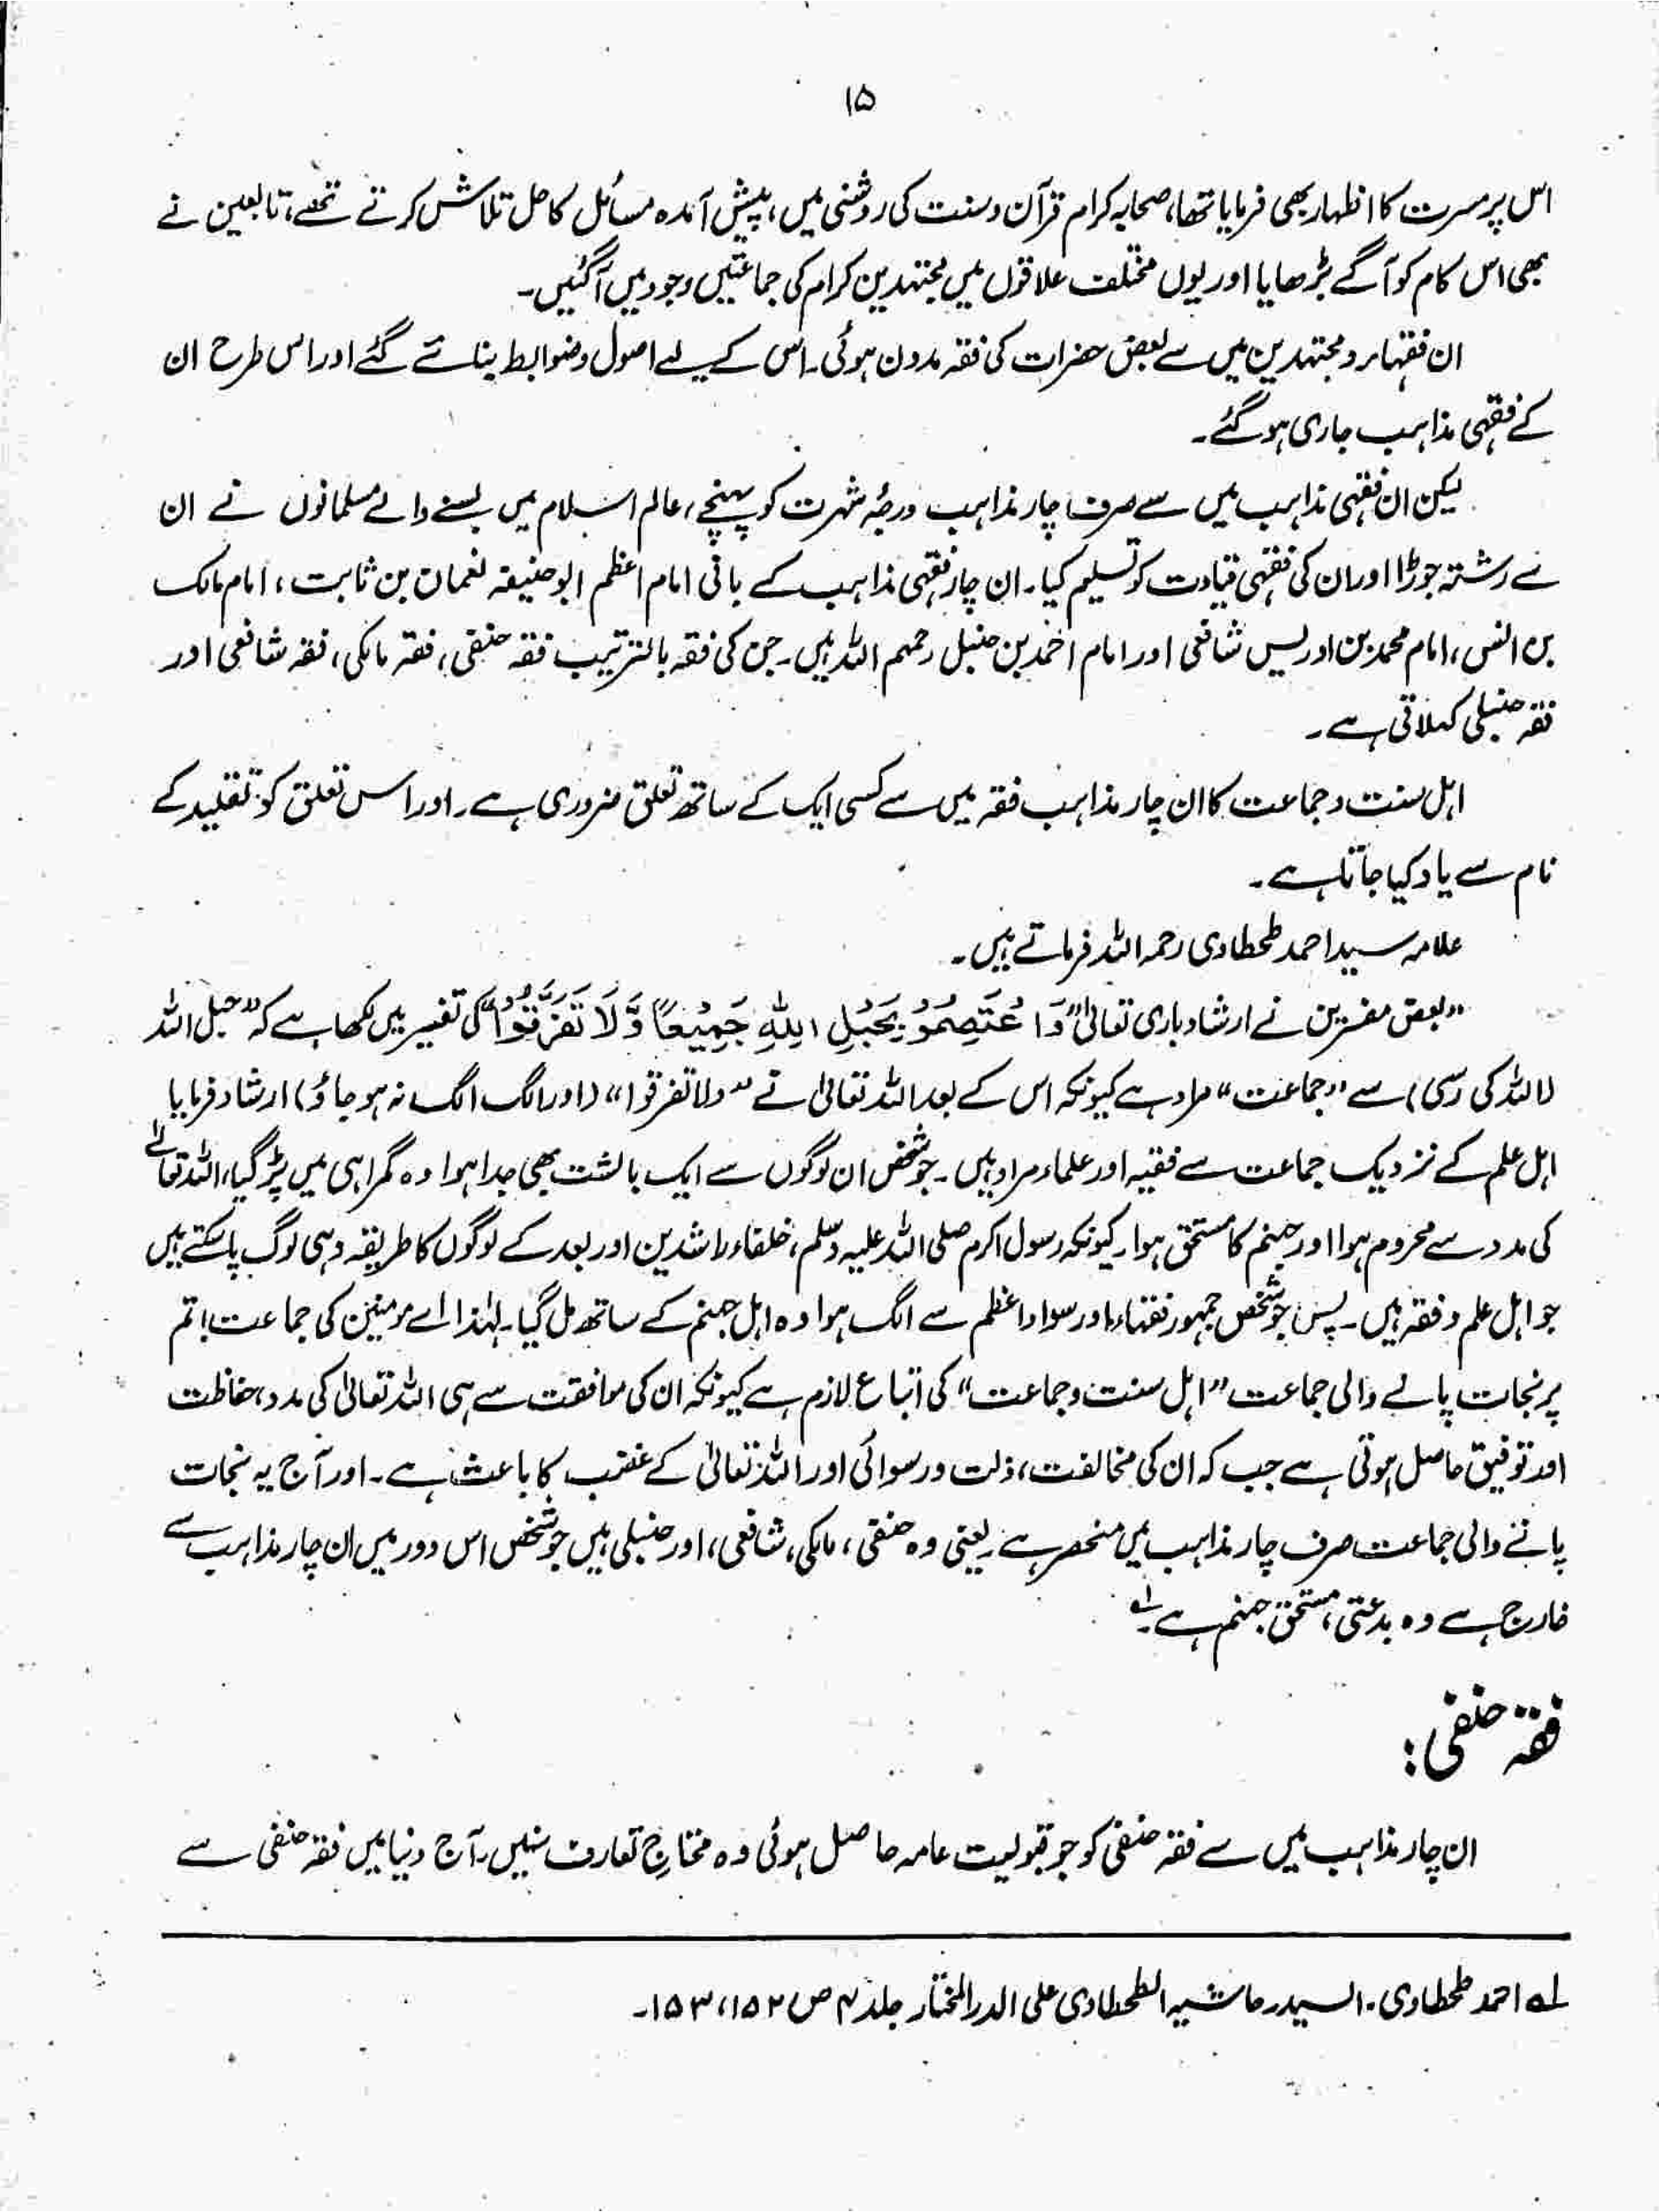 ۱۵
اس پر مسرت کا اظہار بھی فرمایا تھا، صحابہ کرام قرآن و سنت کی روشنی میں، پیش آمدہ مسائل کا حل تلاش کرتے تھے، تابعین نے
بھی اس کام کو آگے بڑھایا اور یوں مختلف علاقوں میں مجتہدین کرام کی جماعتیں وجود میں آگئیں۔
ان فقہاء و مجتہدین میں سے بعض حضرات کی فقہ مدون ہوئی۔ اس کے لیے اصول وضوابط بنائے گئے اور اس طرح ان
کے فقہی مذاہب جاری ہو گئے۔
لیکن ان فقہی مذاہب میں سے صرف چار مذاہب درجۂ شہرت کو پہنچے، عالم اسلام میں بسنے والے مسلمانوں نے ان
سے رشتہ جوڑا اور ان کی فقہی قیادت کو تسلیم کیا۔ ان چار فقہی مذاہب کے بانی امام اعظم ابو حنیفہ نعمان بن ثابت، امام مالک
بن انس، امام محمد بن ادریس شافعی اور امام احمد بن حنبل رحمہم اللہ ہیں۔ جن کی فقہ بالترتیب فقہ حنفی، فقہ مالکی، فقہ شافعی اور
فقہ حنبلی کہلاتی ہے۔
اہل سنت و جماعت کا ان چار مذاہب فقہ میں سے کسی ایک کے ساتھ تعلق ضروری ہے۔ اور اس تعلق کو تقلید کے
نام سے یاد کیا جاتا ہے۔
علامہ سید احمد طحطاوی رحمہ اللہ فرماتے ہیں۔
"بعض مفسرین نے ارشاد باری تعالیٰ "وَاعْتَصِمُوْ بِحَبْلِ اللہِ جَمِیْعًا وَّلَا تَفَرَّقُوْا" کی تفسیر میں لکھا ہے کہ "حبل اللہ
(اللہ کی رسی) سے "جماعت" مراد ہے کیونکہ اس کے بعد اللہ تعالیٰ نے "ولا تفرقوا" (اور الگ الگ نہ ہو جاؤ) ارشاد فرمایا
اہل علم کے نزدیک جماعت سے فقیہ اور علماء مراد ہیں۔ جو شخص ان لوگوں سے ایک بالشت بھی جدا ہوا وہ گمراہی میں پڑ گیا، اللہ تعالےٰ
کی مدد سے محروم ہوا اور جہنم کا مستحق ہوا۔ کیونکہ رسول اکرم صلی اللہ علیہ وسلم، خلفاء راشدین اور بعد کے لوگوں کا طریقہ وہی لوگ پا سکتے ہیں
جو اہل علم و فقہ ہیں۔ پس جو شخص جمہور فقہاء اور سواد اعظم سے الگ ہوا وہ اہل جہنم کے ساتھ مل گیا۔ لہٰذا اے مومنین کی جماعت! تم
پر نجات پانے والی جماعت "اہل سنت و جماعت" کی اتباع لازم ہے کیونکہ ان کی موافقت سے ہی اللہ تعالیٰ کی مدد، حفاظت
اور توفیق حاصل ہوتی ہے جب کہ ان کی مخالفت، ذلت و رسوائی اور اللہ تعالیٰ کے غضب کا باعث ہے۔ اور آج یہ نجات
پانے والی جماعت صرف چار مذاہب میں منحصر ہے۔ یعنی وہ حنفی، مالکی، شافعی، اور حنبلی ہیں جو شخص اس دور میں ان چار مذاہب سے
خارج ہے وہ بدعتی، مستحق جہنم ہے۔ لہ
فقہ حنفی:
ان چار مذاہب میں سے فقہ حنفی کو جو قبولیت عامہ حاصل ہوئی وہ محتاجِ تعارف نہیں۔ آج دنیا میں فقہ حنفی سے
لہ احمد طحطاوی۔ السید۔ حاشیہ الطحطاوی علی الدر المختار جلد ۴ ص ۱۵۲، ۱۵۳۔